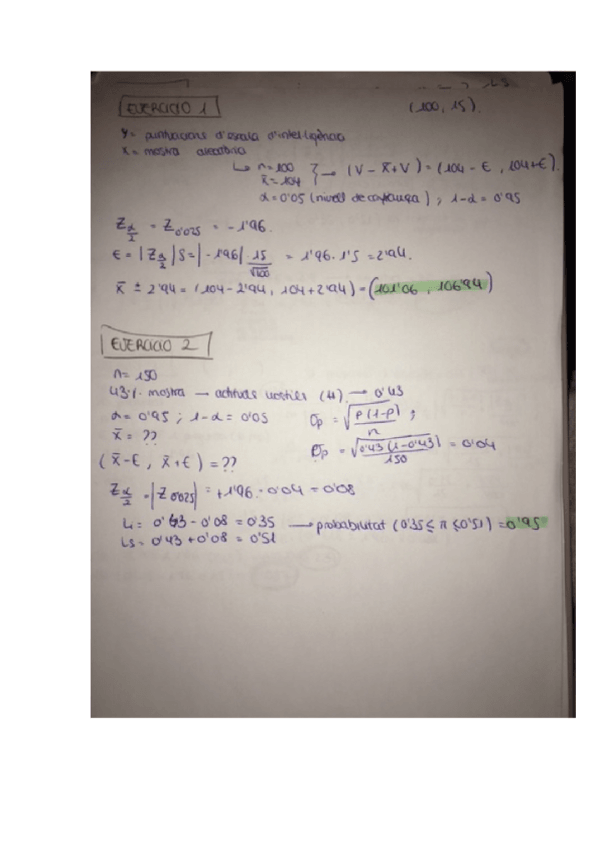 EJERCICIO 1
(100, 15).
Y = puntuacions d'escala d'intel·ligència
X = mostra aleatòria
↳ n=100
x̄=104
} → (V - x̄ + V) = (104 - E, 104+E).
α=0'05 (nivell de confiança); 1-α = 0'95
Zα/2 = Z0'025 = -1'96.
E = |Zα/2| S = |-1'96| · 15/√100 = 1'96 · 1'5 = 2'94.
x̄ ± 2'94 = (104 - 2'94, 104 + 2'94) = (101'06, 106'94)
EJERCICIO 2
n= 150
43% mostra → actituds hostils (H) → 0'43
α= 0'95; 1-α = 0'05
σp = √(p(1-p)/n);
x̄ = ??
σp = √(0'43(1-0'43)/150) = 0'04
(x̄-E, x̄+E) = ??
Zα/2 = |Z0'025| = +1'96 · 0'04 = 0'08
Li= 0'43 - 0'08 = 0'35 → probabilitat (0'35 ≤ π ≤ 0'51) = 0'95
Ls= 0'43 + 0'08 = 0'51